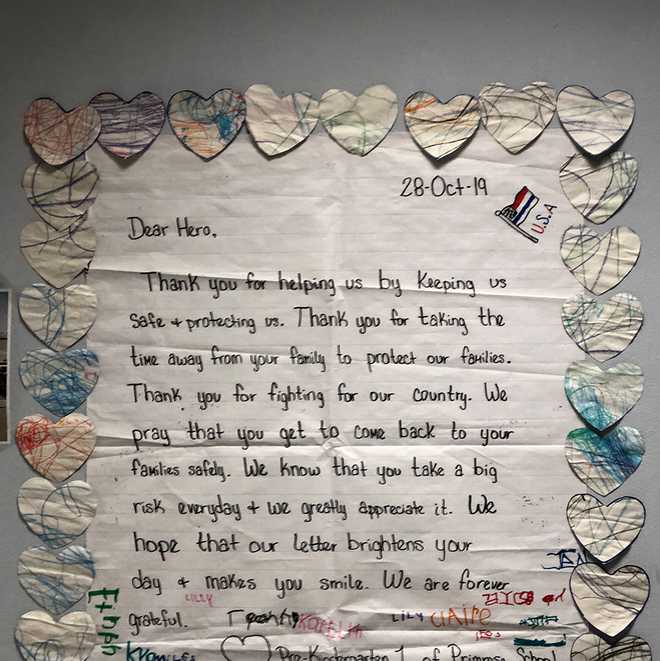 28-Oct-19
U.S.A
Dear Hero,
Thank you for helping us by keeping us
safe + protecting us. Thank you for taking the
time away from your family to protect our families.
Thank you for fighting for our country. We
pray that you get to come back to your
families safely. We know that you take a big
risk everyday + we greatly appreciate it. We
hope that our letter brightens your
day + makes you smile. We are forever
grateful.
LILLY
Ethan
LILY CLAIRE
KNOWLES
Pre-Kindergarten 1 of Primose School